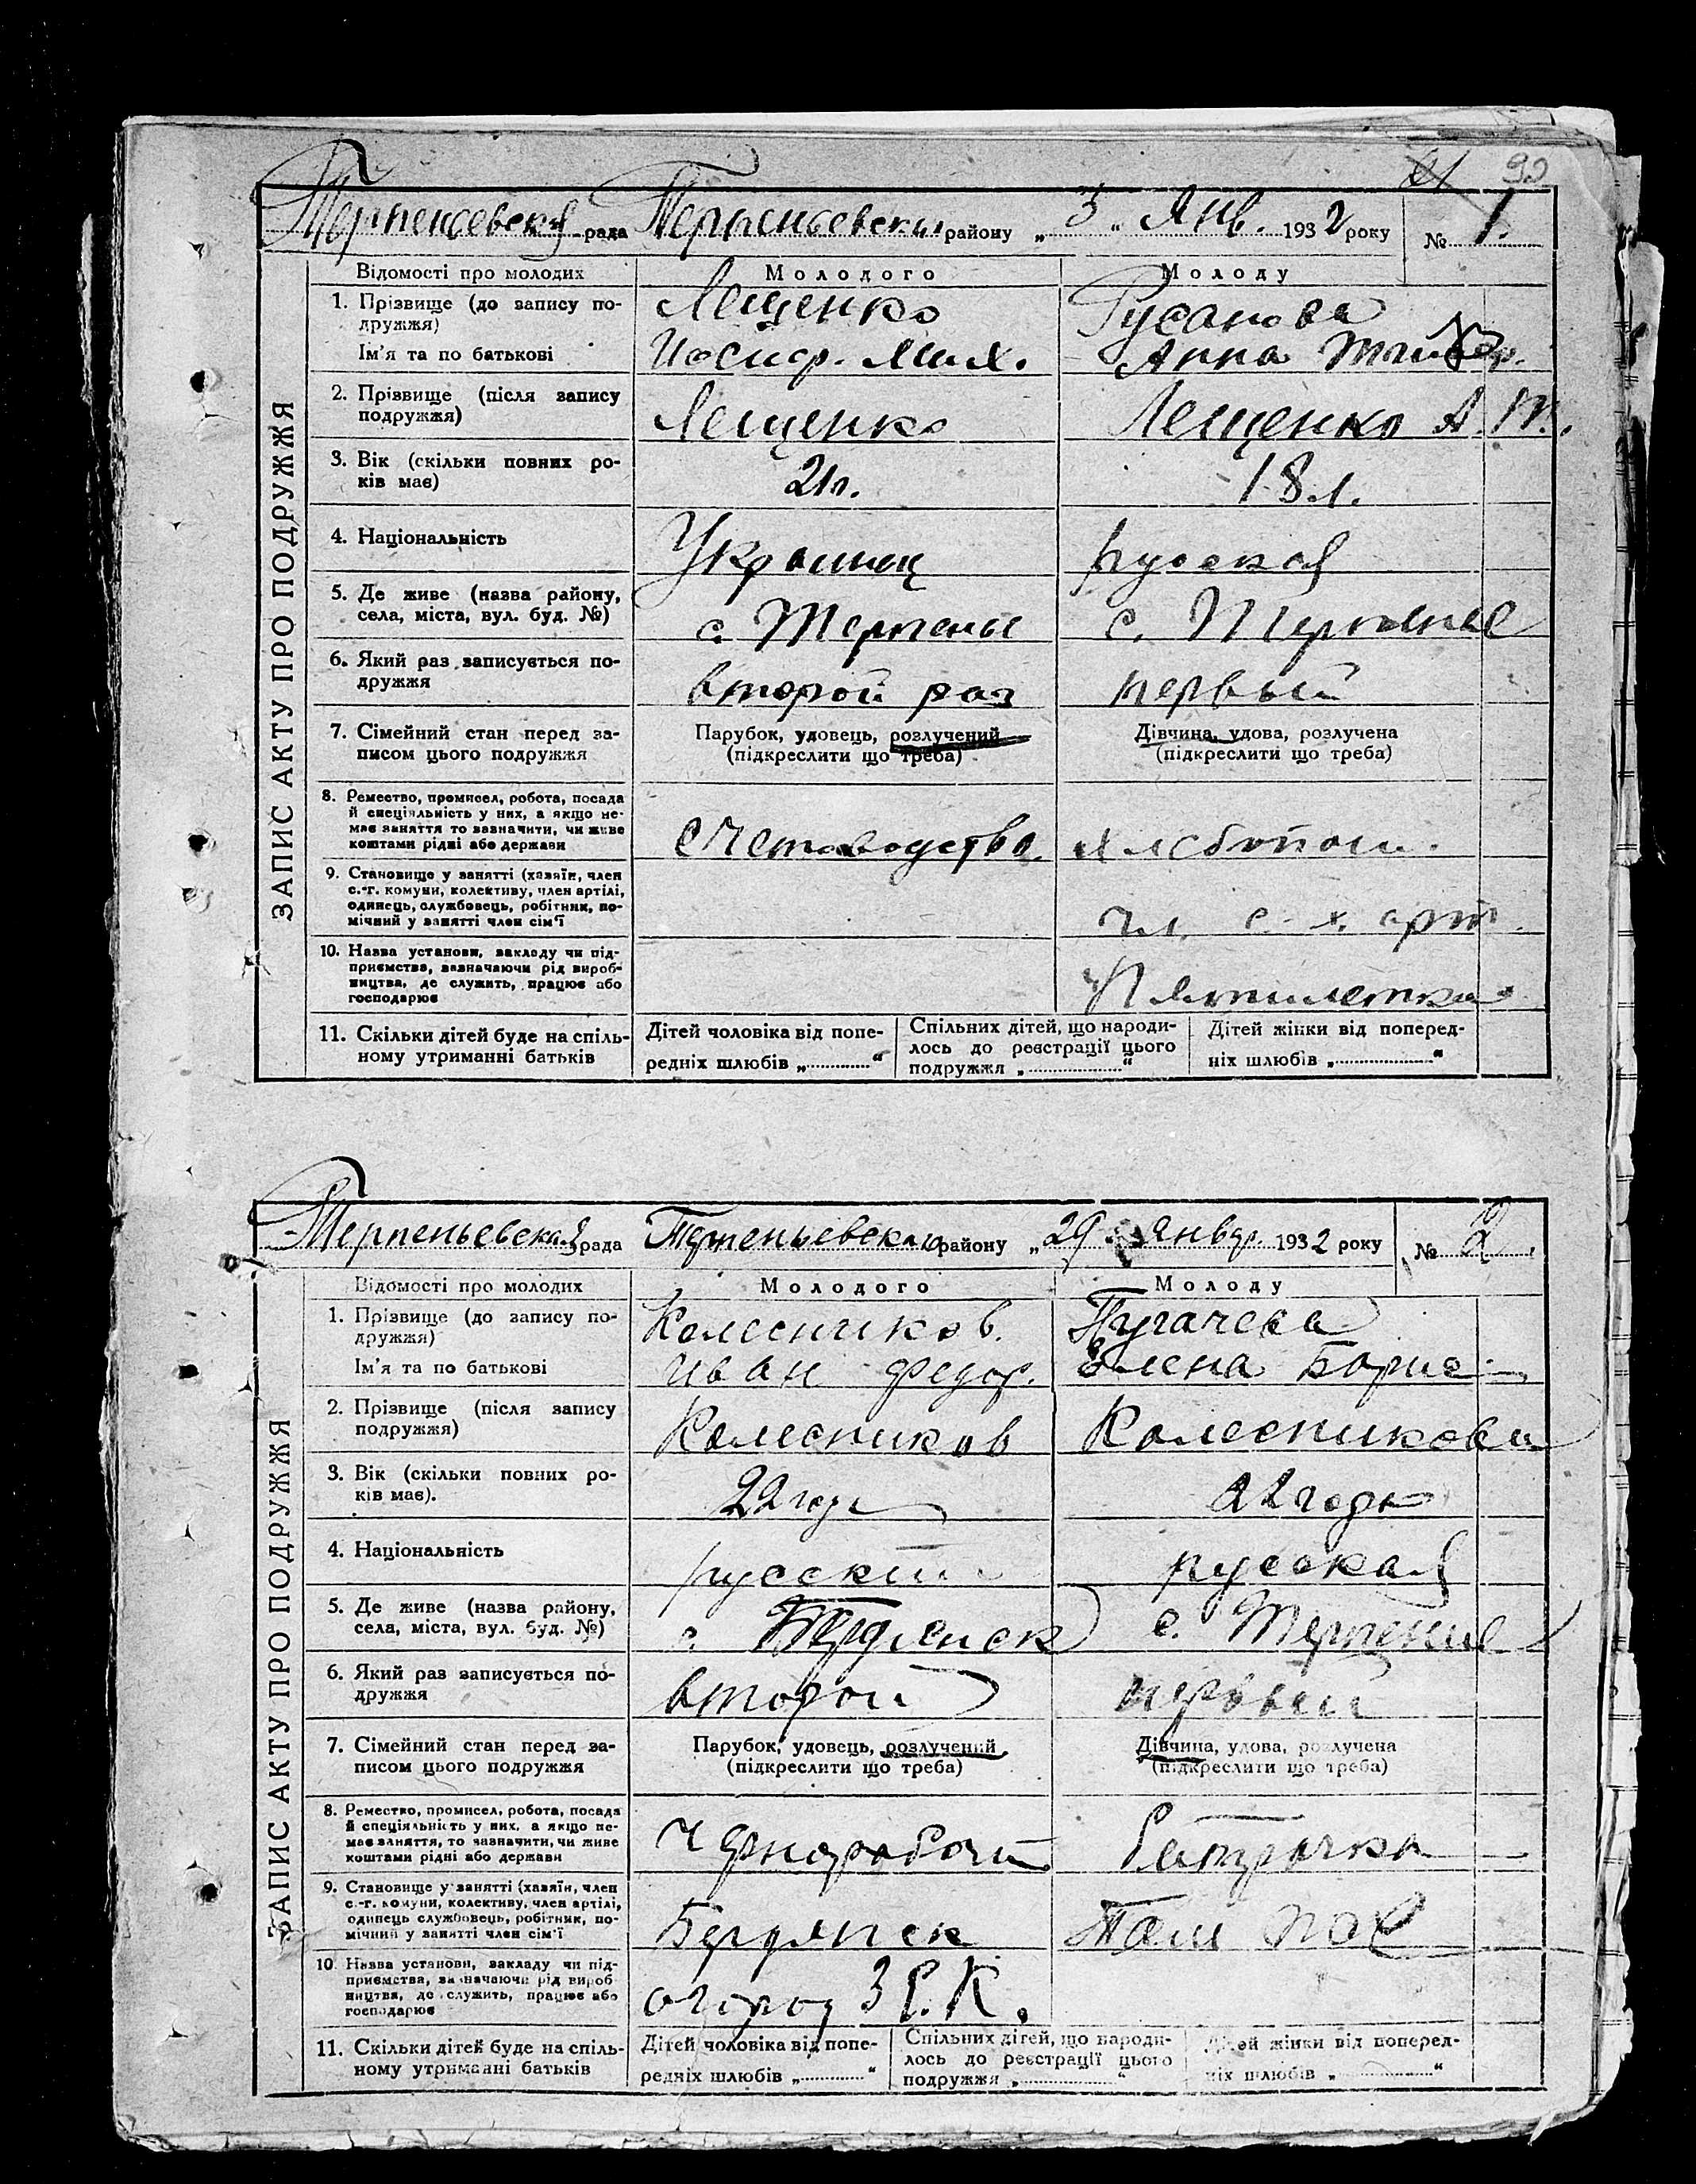 90
Терпеньевская рада Терпеньевский району „ 3 “ Янв. 1932 року № 1.
ЗАПИС АКТУ ПРО ПОДРУЖЖЯ
Відомості про молодих Молодого Молоду
1. Прізвище (до запису по- Лещенко Русанова
дружжя)
Ім'я та по батькові Иосиф. Мих. Анна
2. Прізвище (після запису Лещенко Лещенко А. Т.
подружжя)
3. Вік (скільки повних ро- 21 л. 18 л.
ків має)
4. Національність Украинец русская
5. Де живе (назва району, с. Терпенье с. Терпенье
села, міста, вул. буд. №)
6. Який раз записується по- второй раз первый
дружжя
7. Сімейний стан перед за- Парубок, удовець, розлучений Дівчина, удова, розлучена
писом цього подружжя (підкреслити що треба) (підкреслити що треба)
8. Ремество, промисел, робота, посада
й спеціяльність у них, а якщо не-
має заняття то зазначити, чи живе счетоводство хлебопаш.
коштами рідні або держави
9. Становище у занятті (хазяїн, член
с.-г. комуни, колективу, член артілі,
одинець, службовець, робітник, по- чл. с. х. арт.
мічний у занятті член сім'ї
10. Назва установи, закладу чи під-
приємства, зазначаючи рід вироб- „Пятилетка“
ництва, де служить, працює або
господарює
11. Скільки дітей буде на спіль- Дітей чоловіка від попе- Спільних дітей, що народи- Дітей жінки від поперед-
ному утриманні батьків редніх шлюбів „ “ лось до реєстрації цього ніх шлюбів „ “
подружжя „ “
Терпеньевская рада Терпеньевский району „ 29 “ январ. 1932 року № 2.
ЗАПИС АКТУ ПРО ПОДРУЖЖЯ
Відомості про молодих Молодого Молоду
1. Прізвище (до запису по- Колесников. Пугачева
дружжя)
Ім'я та по батькові Иван Федор. Елена Борис
2. Прізвище (після запису Колесников Колесникова
подружжя)
3. Вік (скільки повних ро- 22 года 22 года
ків має).
4. Національність русский русская
5. Де живе (назва району, г. Бердянск с. Терпение
села, міста, вул. буд. №)
6. Який раз записується по- второй первый
дружжя
7. Сімейний стан перед за- Парубок, удовець, розлучений Дівчина, удова, розлучена
писом цього подружжя (підкреслити що треба) (підкреслити що треба)
8. Ремество, промисел, робота, посада
й спеціяльність у них, а якщо не-
має заняття, то зазначити, чи живе Чернорабочий батрачка
коштами рідні або держави
9. Становище у занятті (хазяїн, член
с.-г. комуни, колективу, член артілі,
одинець службовець, робітник, по- Бердянск Там
мічний у занятті член сім'ї
10. Назва установи, закладу чи під-
приємства, зазначаючи рід вироб огород З Р. К.
ництва, де служить, працює або
господарює
11. Скільки дітей буде на спіль- Дітей чоловіка від попе- Спільних дітей, що народи- Дітей жінки від поперед-
ному утриманні батьків редніх шлюбів „ “ лось до реєстрації цього ніх шлюбів „ “
подружжя „ “